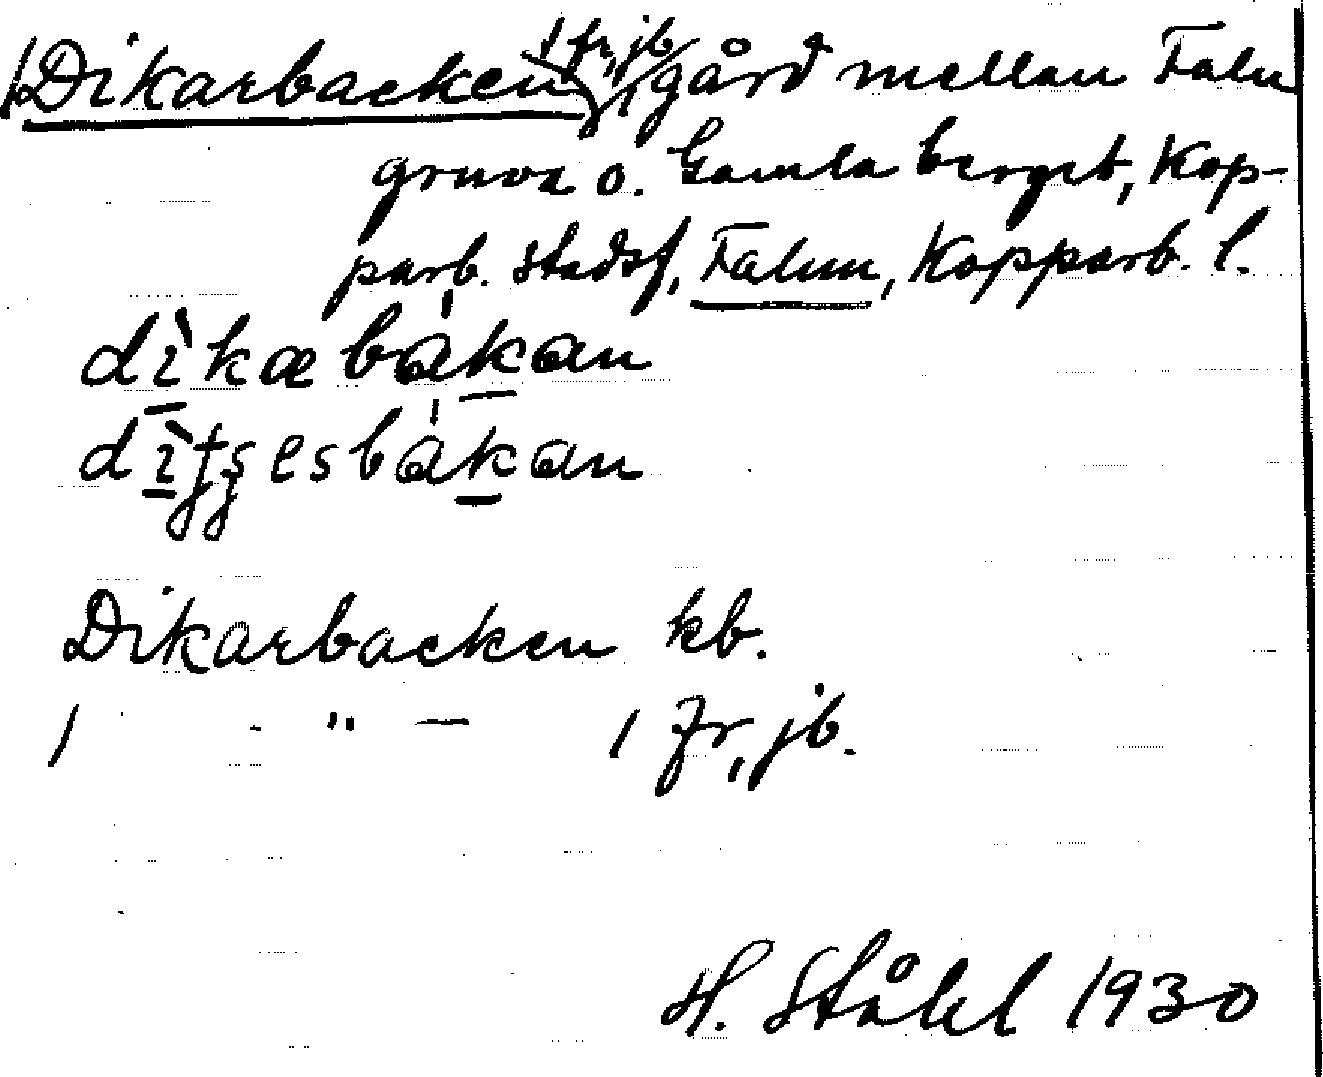 /Dikarbacken/ fr, jb / gård mellan Falu
gruva o. Gamla berget, Kop-
parb. stadsf, Falun, Kopparb. l.
dìkæbakan
Dikarbacken kb.
/ - " — / Fr, jb.
H. Ståhl 1930